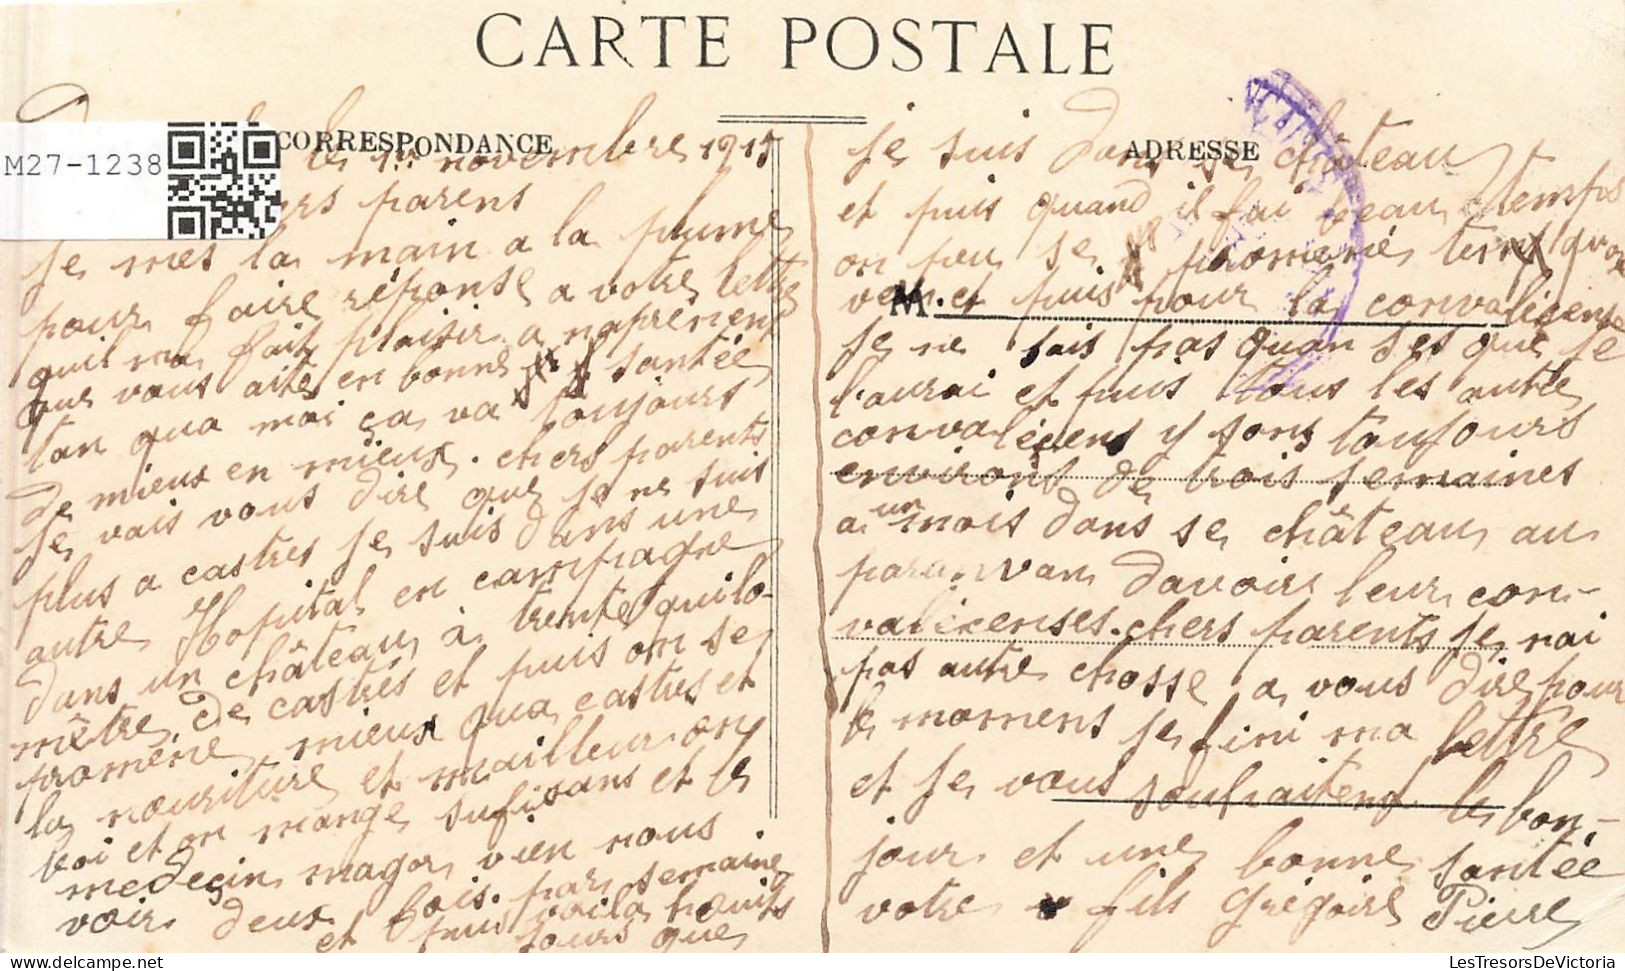 CARTE POSTALE
CORRESPONDANCE
ADRESSE
M27-1238
le 1er novembre 1915
parens
Je mes la main a la plume
pour faire réponse a votre lettre
quil ma fait plaisir a naprenent
que vous aite en bonne santée
tan qua moi ça va toujours
de mieux en mieux. chers parents
Je vais vous dire que je ne suis
plus a castres je suis dans une
autre Hopital en campagne
dans un château à trente quilo-
mêtre de castres et puis on se
promène mieux qua castres et
la nouriture et mailleur on
boi et on mange sufisans et le
medeçin magor vien nous
voir deux fois par semaine
et puis voila huits
jours que
je suis dans se château
et puis quand il fai beau temps
on peu se promenés temp quon
veu et puis pour la convalicense
M.
je ne sais pas quan ses que je
l'aurai et puis tous les autre
convalécens y sons toujours
environt de trois semaines
a un mois dans se château au
paravan davoir leur con-
valicenses. chers parents je nai
pas autre chosse a vous dire pour
le momens je fini ma lettre
et je vous souhaitens le bon-
jour et une bonne santée
votre fils Grégoire Pierre
LesTresorsDeVictoria